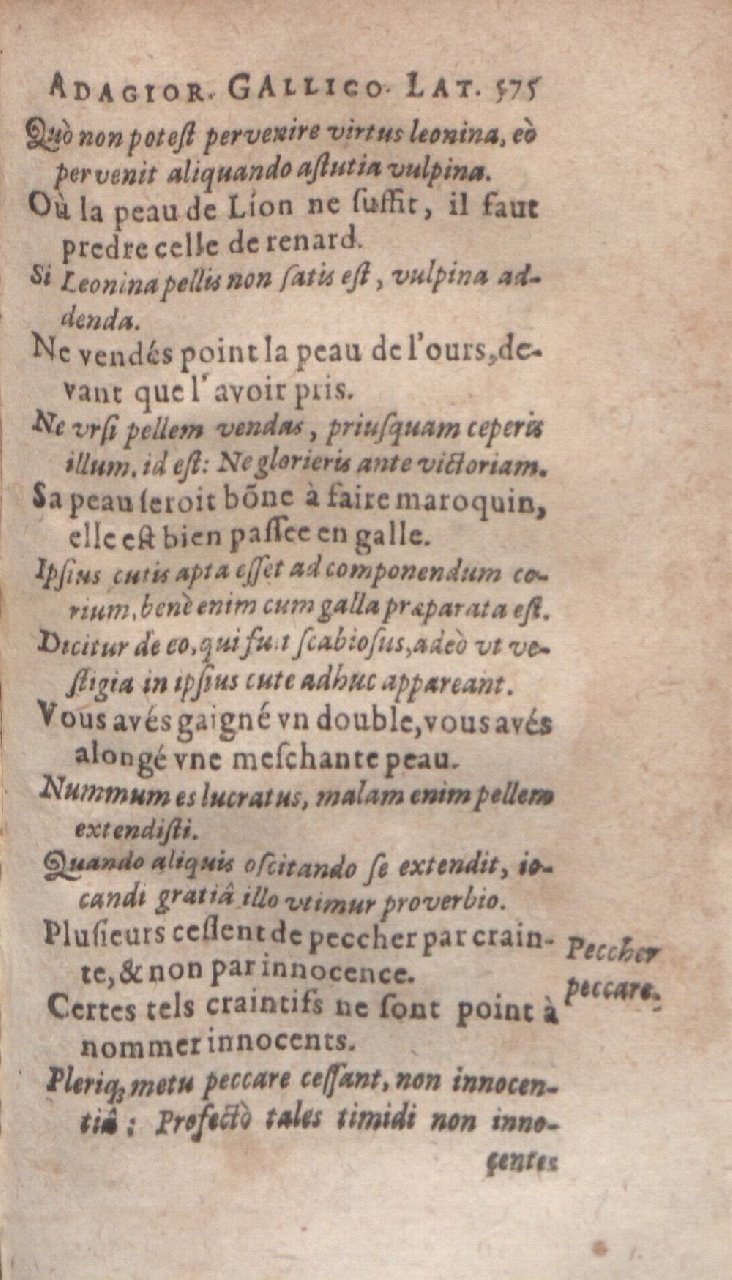 ADAGIOR. GALLICO. LAT. 575
Quò non potest pervenire virtus leonina, eò
pervenit aliquando astutia vulpina.
Où la peau de Lion ne suffit, il faut
predre celle de renard.
Si Leonina pellis non satis est, vulpina ad-
denda.
Ne vendés point la peau de l'ours, de-
vant que l'avoir pris.
Ne vrsi pellem vendas, priusquam ceperis
illum. id est: Ne glorieris ante victoriam.
Sa peau seroit bõne à faire maroquin,
elle est bien passee en galle.
Ipsius cutis apta esset ad componendum co-
rium, benè enim cum galla præparata est.
Dicitur de eo, qui fuit scabiosus, adeò vt ve-
stigia in ipsius cute adhuc appareant.
Vous avés gaigné vn double, vous avés
alongé vne meschante peau.
Nummum es lucratus, malam enim pellem
extendisti.
Quando aliquis oscitando se extendit, io-
candi gratiâ illo vtimur proverbio.
Plusieurs cessent de peccher par crain-
te, & non par innocence.
Certes tels craintifs ne sont point à
nommer innocents.
Pleriq; metu peccare cessant, non innocen-
tiâ: Profectò tales timidi non inno-
centes
Peccher
peccare.